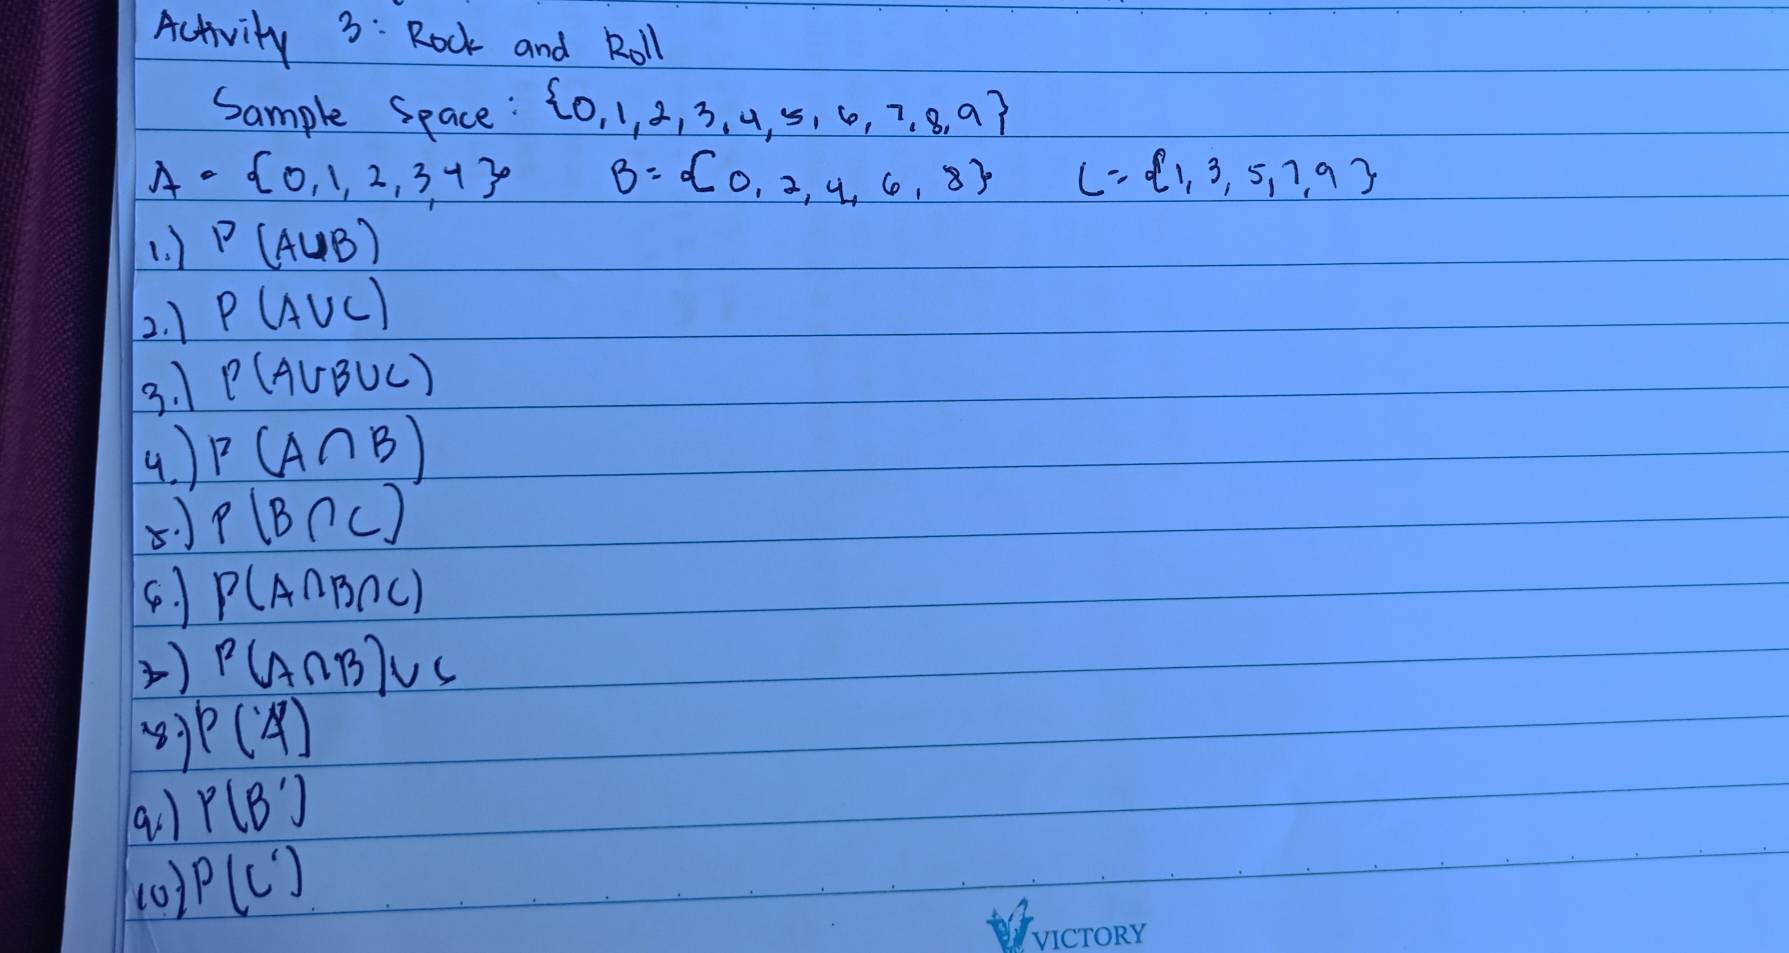 Activity 3: Rock and Roll
Sample Space: {0,1,2,3,4,5,6,7,8,9}
A = {0,1,2,3,4} B = {0,2,4,6,8} C = {1,3,5,7,9}
1.) P(A∪B)
2.) P(A∪C)
3.) P(A∪B∪C)
4.) P(A∩B)
5.) P(B∩C)
6.) P(A∩B∩C)
7.) P(A∩B)∪C
8.) P(A')
9.) P(B')
10.) P(C')
VICTORY